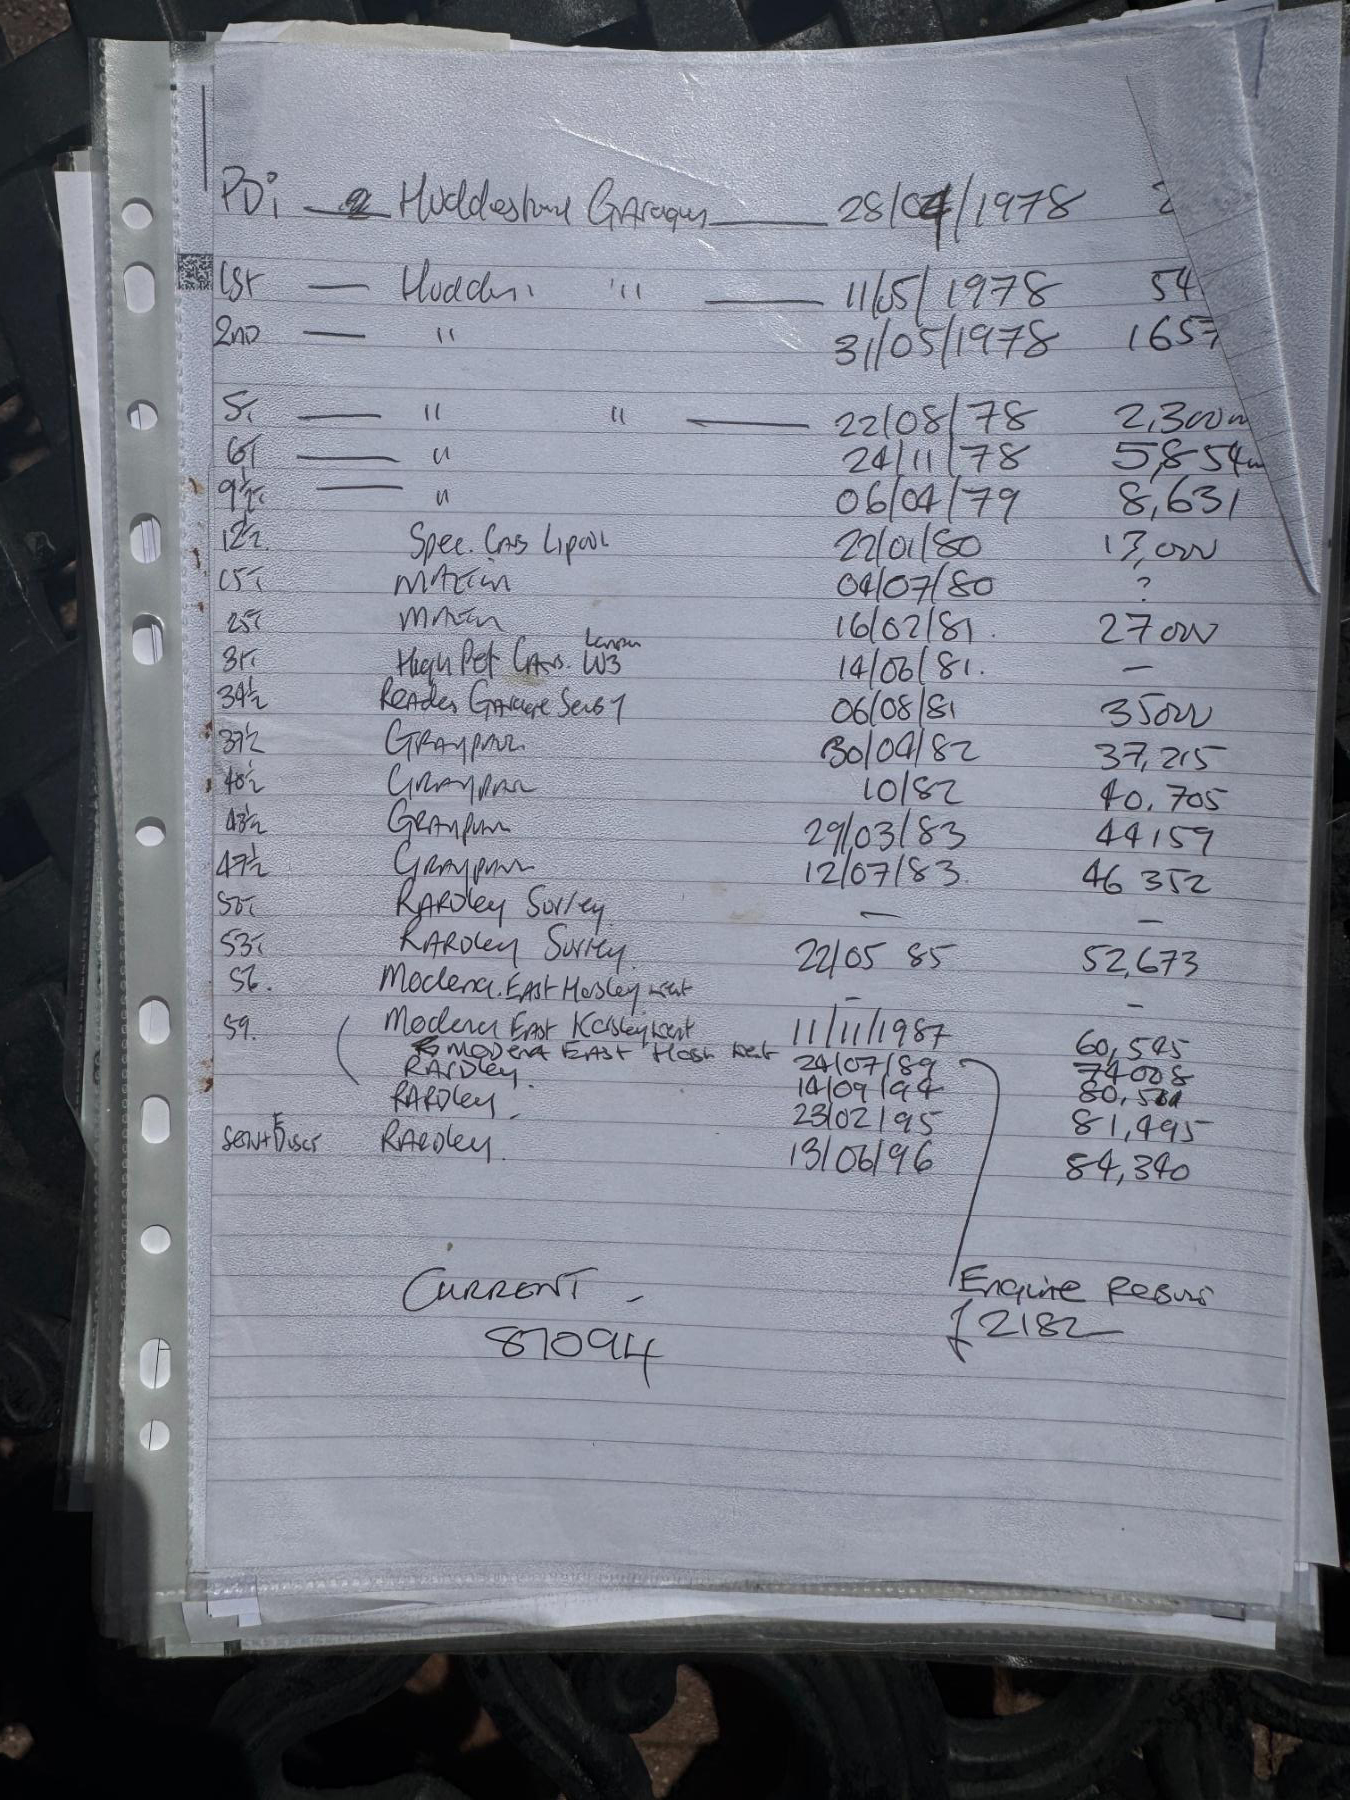 PDi — Huddlestone Garages — 28/04/1978 2
1st — Hudd 〃 — 11/05/1978 54
2nd — 〃 31/05/1978 1657
5T — 〃 〃 — 22/08/78 2,300m
6T — 〃 24/11/78 5,854m
9½T — 〃 06/04/79 8,631
12½ Spec. Cars Lipool 22/01/80 13,000
15T 04/07/80 ?
25T 16/02/81. 27000
31T High Pef Cars. London W3 14/06/81. —
34½ Reades Garage 06/08/81 35000
37½ Graypaul 30/04/82 37,215
40½ Graypaul 10/82 40,705
43½ Graypaul 29/03/83 44159
47½ Graypaul 12/07/83. 46352
50T RARDley Surrey — —
53T RARDley Surrey 22/05 85 52,673
56. Modena. East Horsley — —
59. Modena East 11/11/1987 60,545
Modena East 24/07/89 74008
RARDley. 14/09/94
RARDley. 23/02/95 81,495
RARDley. 13/06/96 84,340
CURRENT -
87094
Engine
£2182